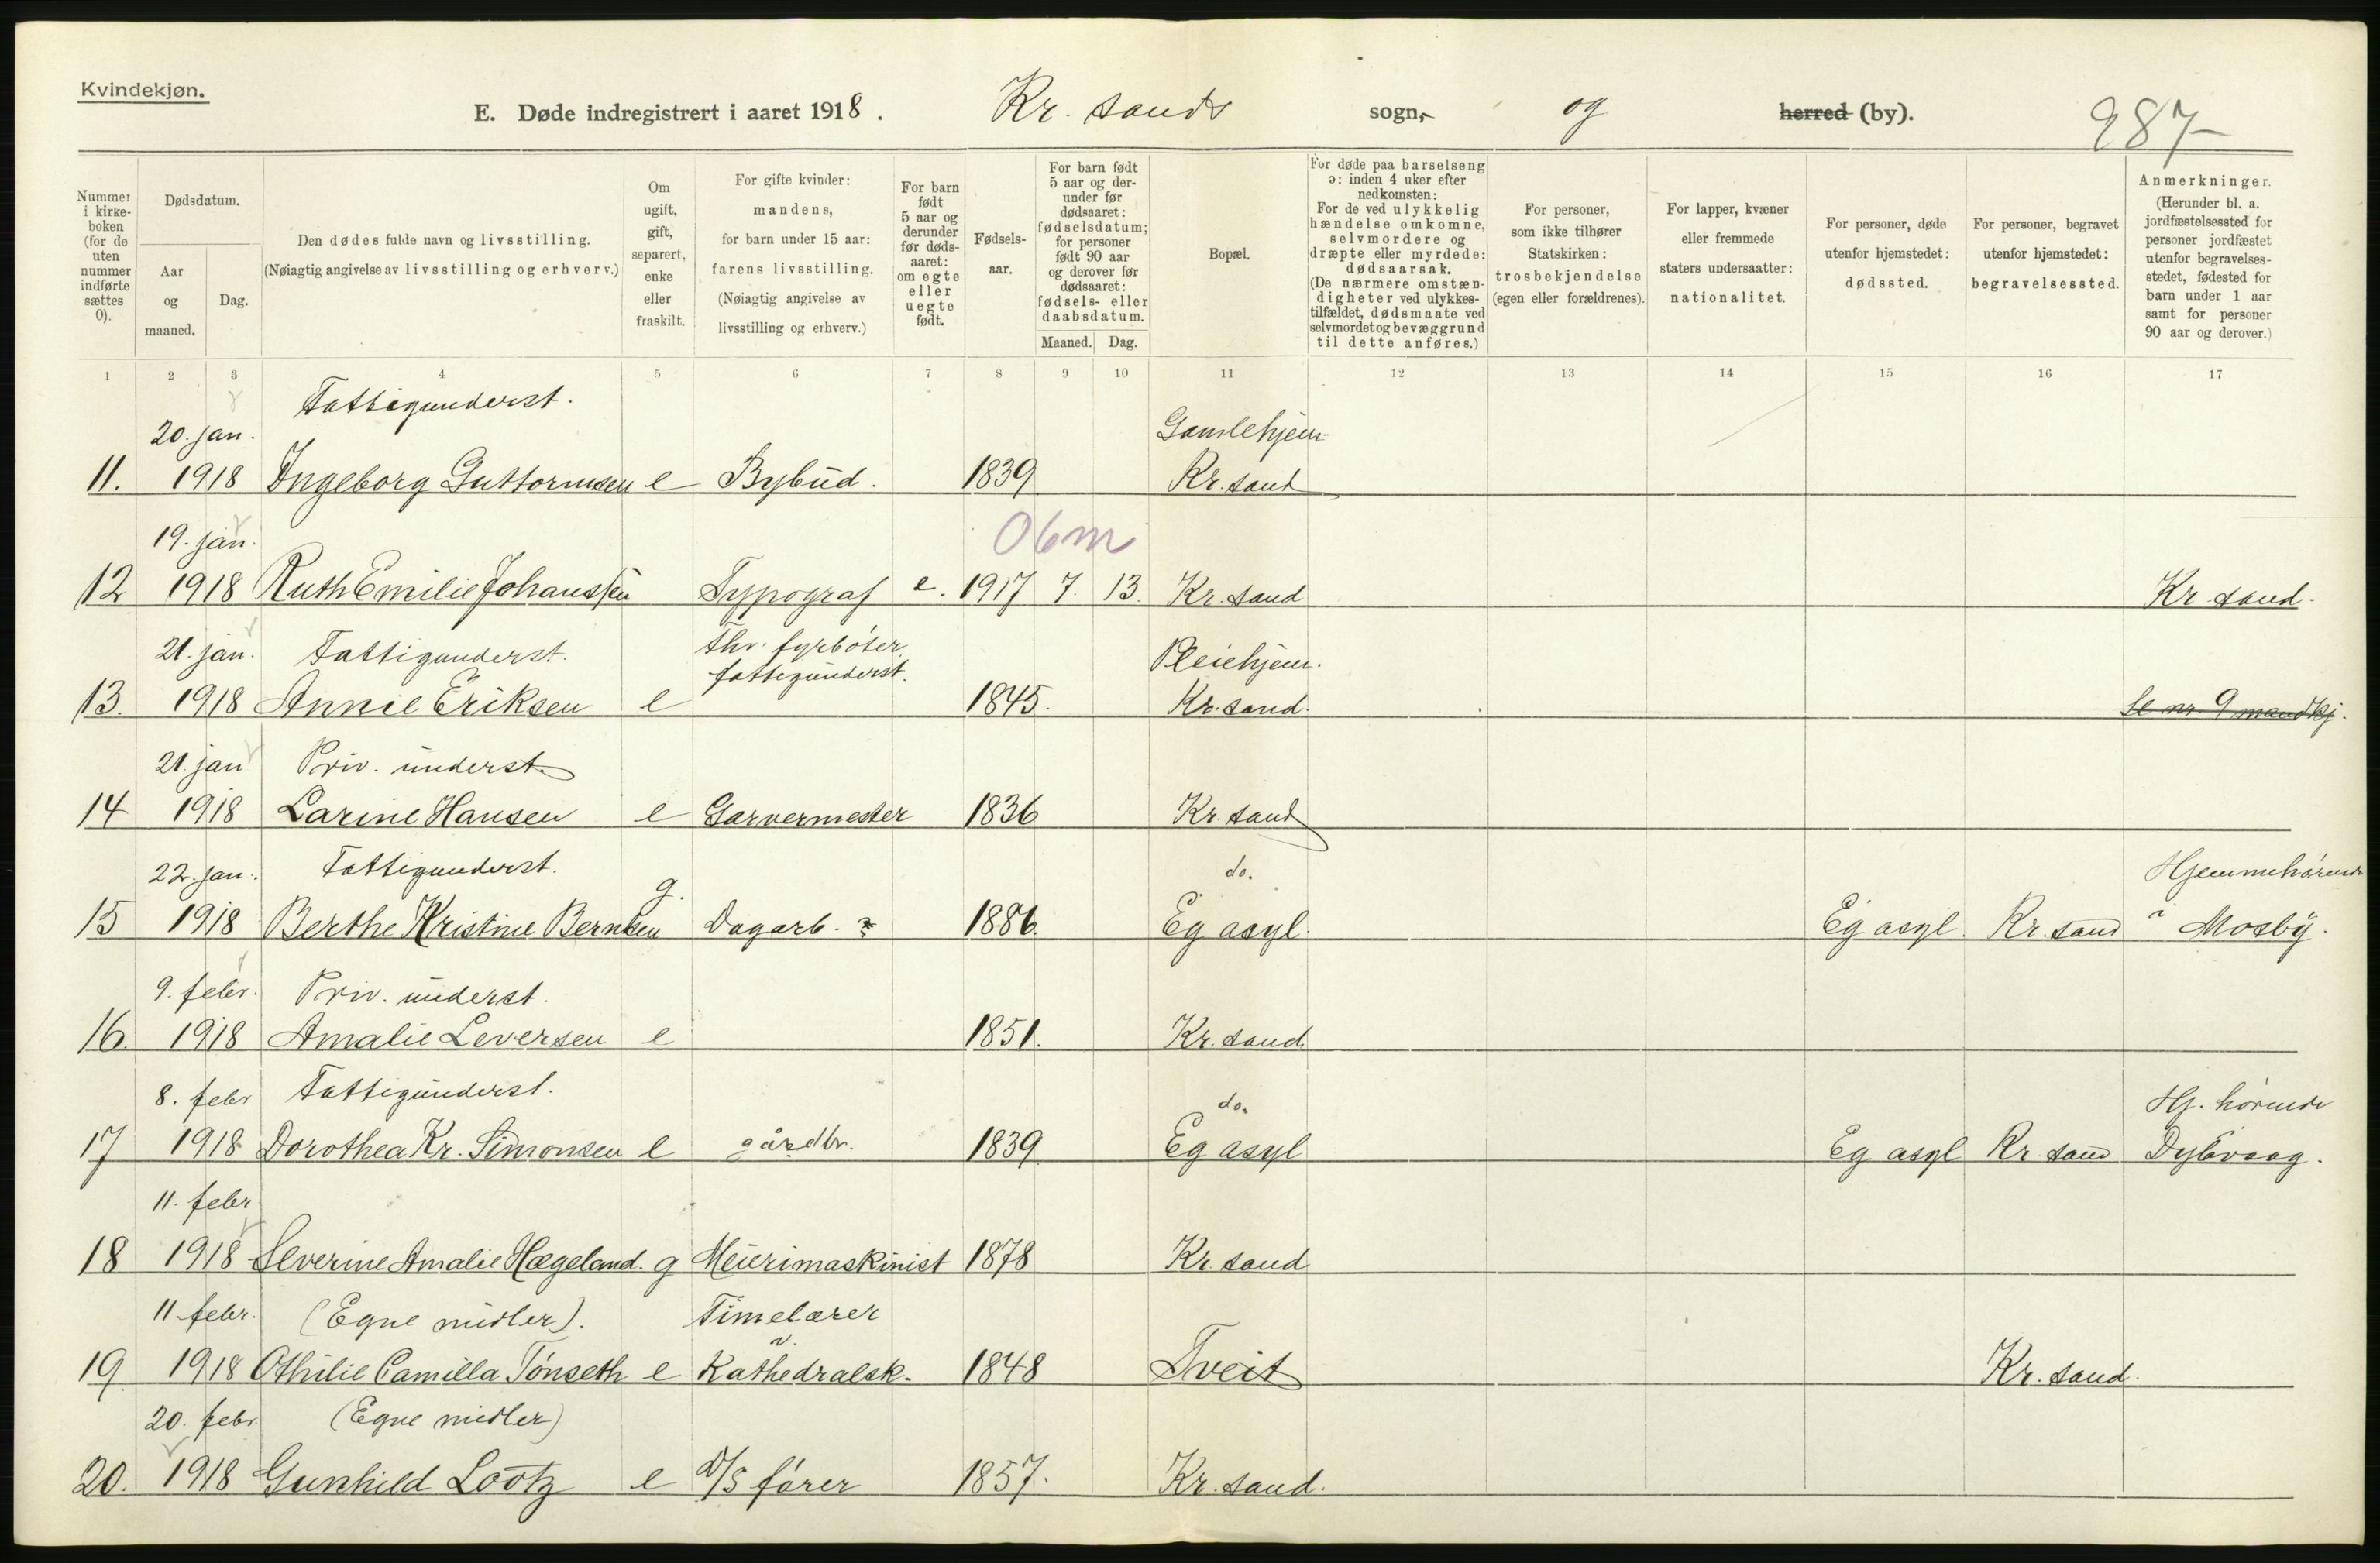 Kvindekjøn.
E. Døde indregistrert i aaret 1918. Kr. sands sogn, og herred (by). 287
Nummer i kirke-boken (for de uten nummer indførte sættes 0).
Dødsdatum.
Aar og maaned.
Dag.
Den dødes fulde navn og livsstilling. (Nøiagtig angivelse av livsstilling og erhverv.)
Om ugift, gift, separert, enke eller fraskilt.
For gifte kvinder: mandens, for barn under 15 aar: farens livsstilling. (Nøiagtig angivelse av livsstilling og erhverv.)
For barn født 5 aar og derunder før døds-aaret: om egte eller uegte født.
Fødsels-aar.
For barn født 5 aar og der-under før dødsaaret: fødselsdatum; for personer født 90 aar og derover før dødsaaret: fødsels- eller daabsdatum.
Maaned. Dag.
Bopæl.
For døde paa barselseng ɔ: inden 4 uker efter nedkomsten: For de ved ulykkelig hændelse omkomne, selvmordere og dræpte eller myrdede: dødsaarsak. (De nærmere omstæn-digheter ved ulykkes-tilfældet, dødsmaate ved selvmordet og bevæggrund til dette anføres.)
For personer, som ikke tilhører Statskirken: trosbekjendelse (egen eller forældrenes).
For lapper, kvæner eller fremmede staters undersaatter: nationalitet.
For personer, døde utenfor hjemstedet: dødssted.
For personer, begravet utenfor hjemstedet: begravelsessted.
Anmerkninger. (Herunder bl. a. jordfæstelsessted for personer jordfæstet utenfor begravelses-stedet, fødested for barn under 1 aar samt for personer 90 aar og derover.)
1 2 3 4 5 6 7 8 9 10 11 12 13 14 15 16 17
20. jan. Fattigunderst. Gamlehjem
11. 1918 Ingeborg Guttormsen e Bybud. 1839 Kr. sand
19. jan. 06m
12 1918 Ruth Emilie Johanssen Typograf e. 1917 7. 13. Kr. sand Kr. sand.
21. jan. Fattigunderst. fhv. fyrbøter fattigunderst. Pleiehjem.
13. 1918 Annie Eriksen e 1845. Kr. sand. Se nr. 9 mandkj.
21. jan Priv. underst.
14 1918 Larine Hansen e Garvermester 1836 Kr. sand
22. jan. Fattigunderst. do. Hjemmehørende
15 1918 Berthe Kristine Berntsen g. Dagarb. 1886. Eg asyl. Eg asyl. Kr. sand i Mosby.
9. febr. Priv. underst.
16. 1918 Amalie Leversen e 1851. Kr. sand
8. febr Fattigunderst. do. Hj. hørende
17 1918 Dorothea Kr. Simonsen e gårdbr. 1839 Eg asyl Eg asyl Kr. sand Dybvaag.
11. febr
18 1918 Severine Amalie Hægeland. g Meierimaskinist 1878 Kr. sand
11. febr. (Egne midler). Timelærer
19 1918 Othilie Camilla Tønseth e v. Kathedralsk. 1848 Tveit Kr. sand.
20. febr. (Egne midler)
20. 1918 Gunhild Lootz e D/S fører 1857. Kr. sand.